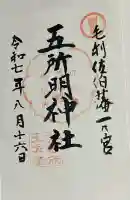 毛利佐伯藩一の宮
五所明神社
令和七年八月十六日